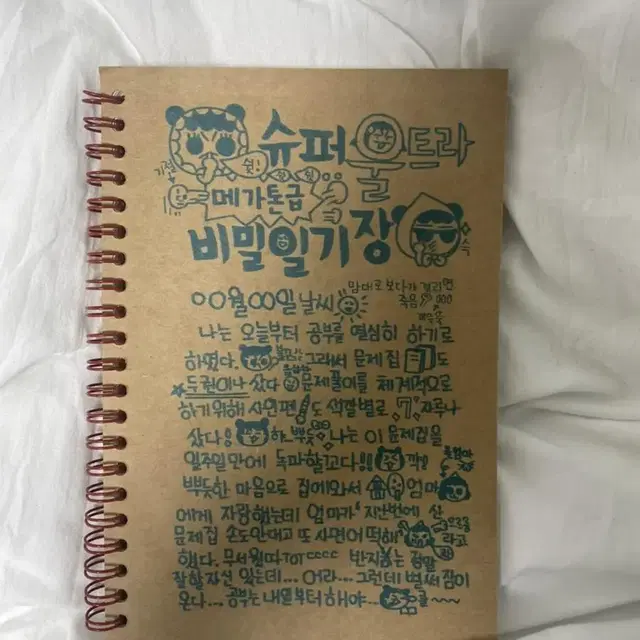 슈퍼울트라
쉿!
메가톤급
비밀일기장
맘대로 보다가 걸리면
죽음
00월00일 날씨
나는 오늘부터 공부를 열심히 하기로
하였다. 그래서 문제집도
두권이나 샀다 문제풀이를 체계적으로
하기위해 사인펜도 색깔별로 7자루나
샀다! 하.. 뿌듯 나는 이 문제집을
일주일만에 독파할고다!!
뿌듯한 마음으로 집에와서 엄마
에게 자랑했는데 엄마가 지난번에 산
문제집 손도안대고 또 사면어떡해 라고
했다. 무서웠따 ㅠㅠ 반지는 정말
잘할자신 있는데... 어라... 그런데 벌써 잠이
온다... 공부는 내일부터 해야...